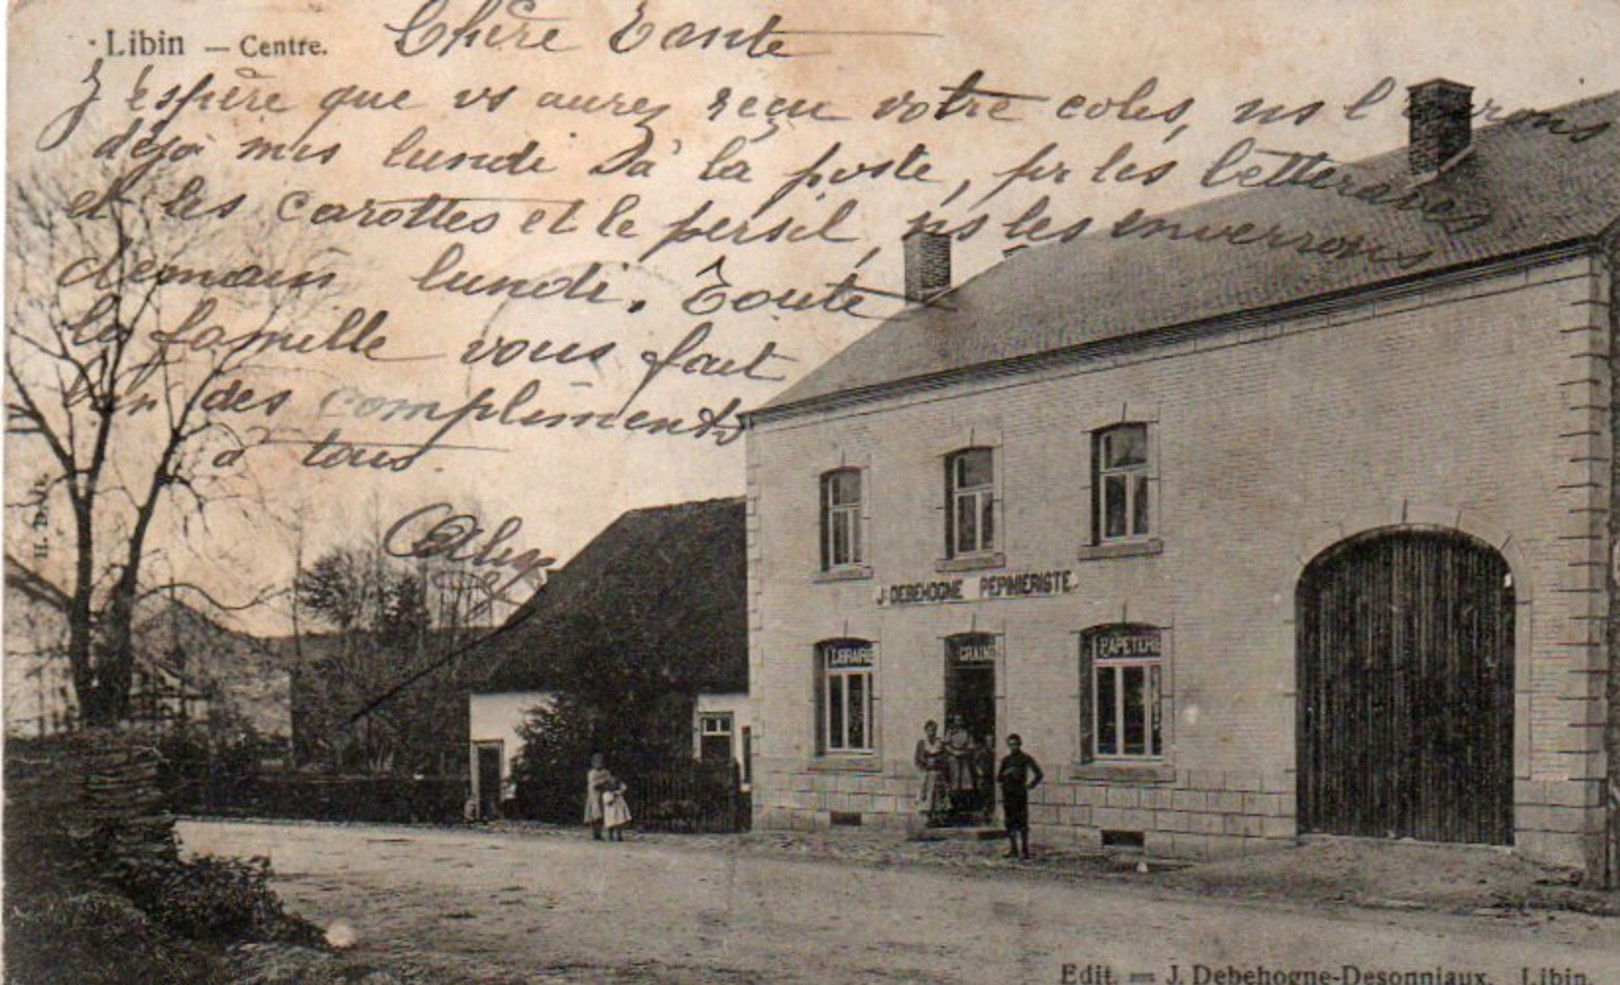 Libin — Centre.
Chère Tante
J'espère que vs aurez reçu votre colis, ns l'avons
déjà mis lundi à la poste, pr les betteraves
et les carottes et le persil, ns les enverrons
demain lundi. Toute
la famille vous fait
bien des compliments
à tous.
J. DEBEHOGNE PÉPINIÉRISTE.
LIBRAIRIE
GRAINES
PAPETERIE
Edit. — J. Debehogne-Desonniaux, Libin.